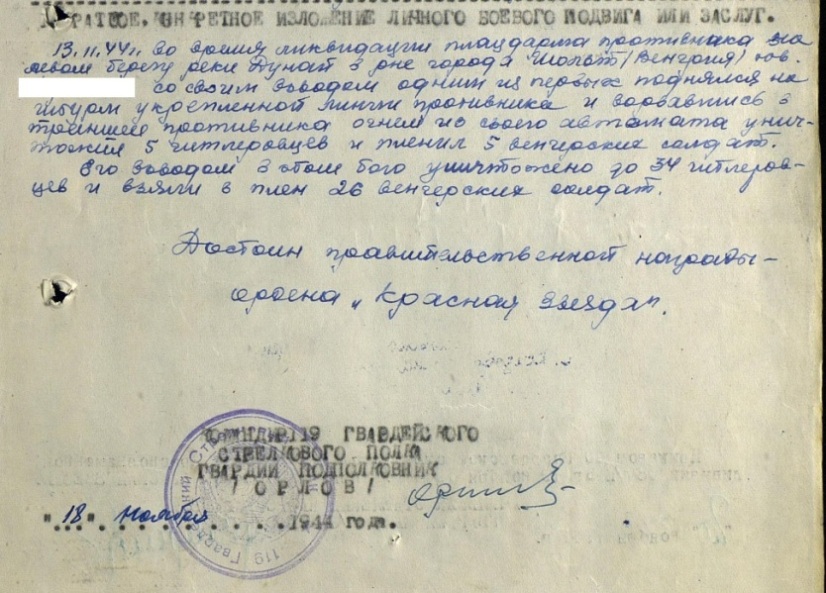 КРАТКОЕ, КОНКРЕТНОЕ ИЗЛОЖЕНИЕ ЛИЧНОГО БОЕВОГО ПОДВИГА ИЛИ ЗАСЛУГ.
13.11.44г. во время ликвидации плацдарма противника на
левом берегу реки Дунай в р-не города Шольт (Венгрия) гв.
со своим взводом одним из первых поднялся на
штурм укрепленной линии противника и ворвавшись в
траншеи противника огнем из своего автомата унич-
тожил 5 гитлеровцев и пленил 5 венгерских солдат.
Его взводом в этом бою уничтожено до 34 гитлеров-
цев и взяли в плен 26 венгерских солдат.
Достоин правительственной награды-
ордена „Красная звезда".
КОМАНДИР 119 ГВАРДЕЙСКОГО
СТРЕЛКОВОГО ПОЛКА
ГВАРДИИ ПОДПОЛКОВНИК
/ОРЛОВ/
"18" Ноября 1944 года.
119 Гвар